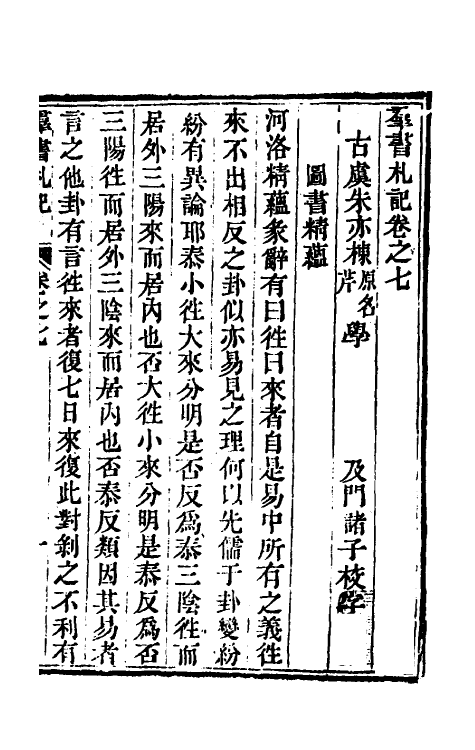 羣書札記卷之七
古虞朱亦棟原名芹學 及門諸子校字
圖書精蘊
河洛精蘊彖辭有曰徃曰來者自是易中所有之義徃
來不出相反之卦似亦易見之理何以先儒于卦變紛
紛有異論耶泰小徃大來分明是否反爲泰三陰徃而
居外三陽來而居內也否大徃小來分明是泰反爲否
三陽徃而居外三陰來而居內也否泰反類因其易者
言之他卦有言徃來者復七日來復此對剝之不利有
羣書札記 卷之七 一